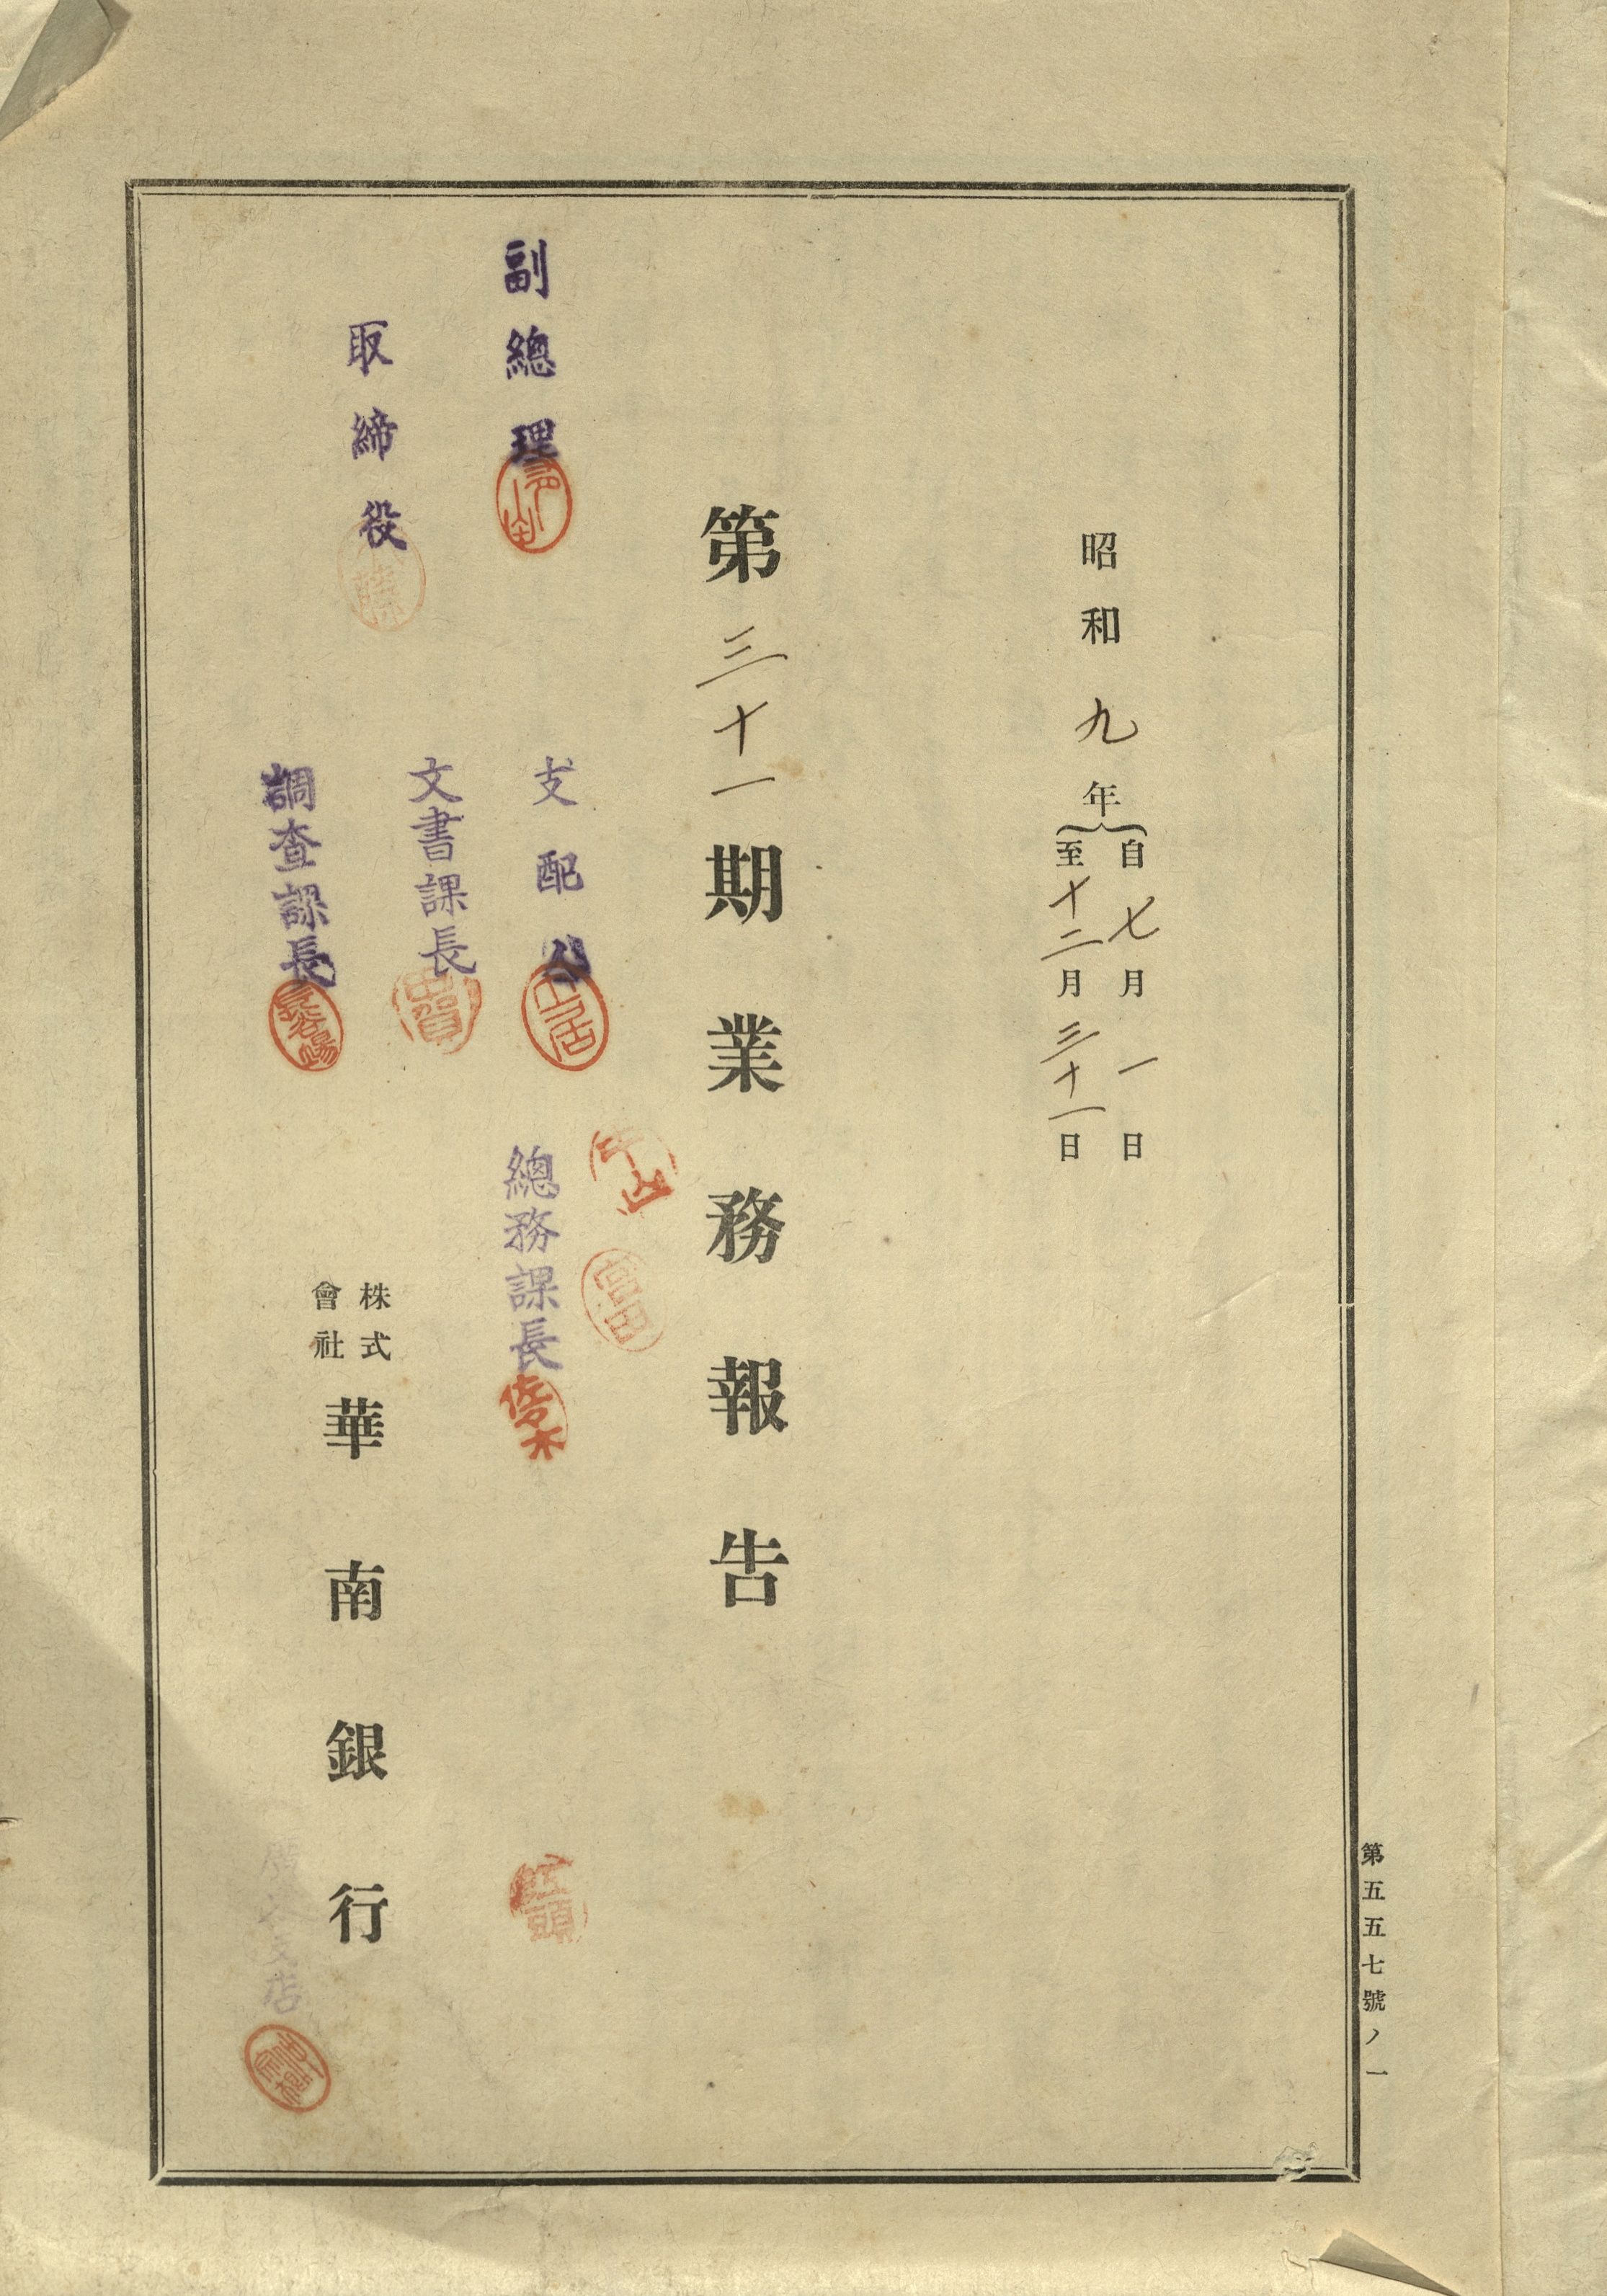 昭和九年
自七月一日
至十二月三十一日
第三十一期業務報告
副總理
取締役
支配人
文書課長
調查課長
中山
總務課長
宮田
佐々木
江頭
株式
會社
華南銀行
支店
第五五七號ノ一